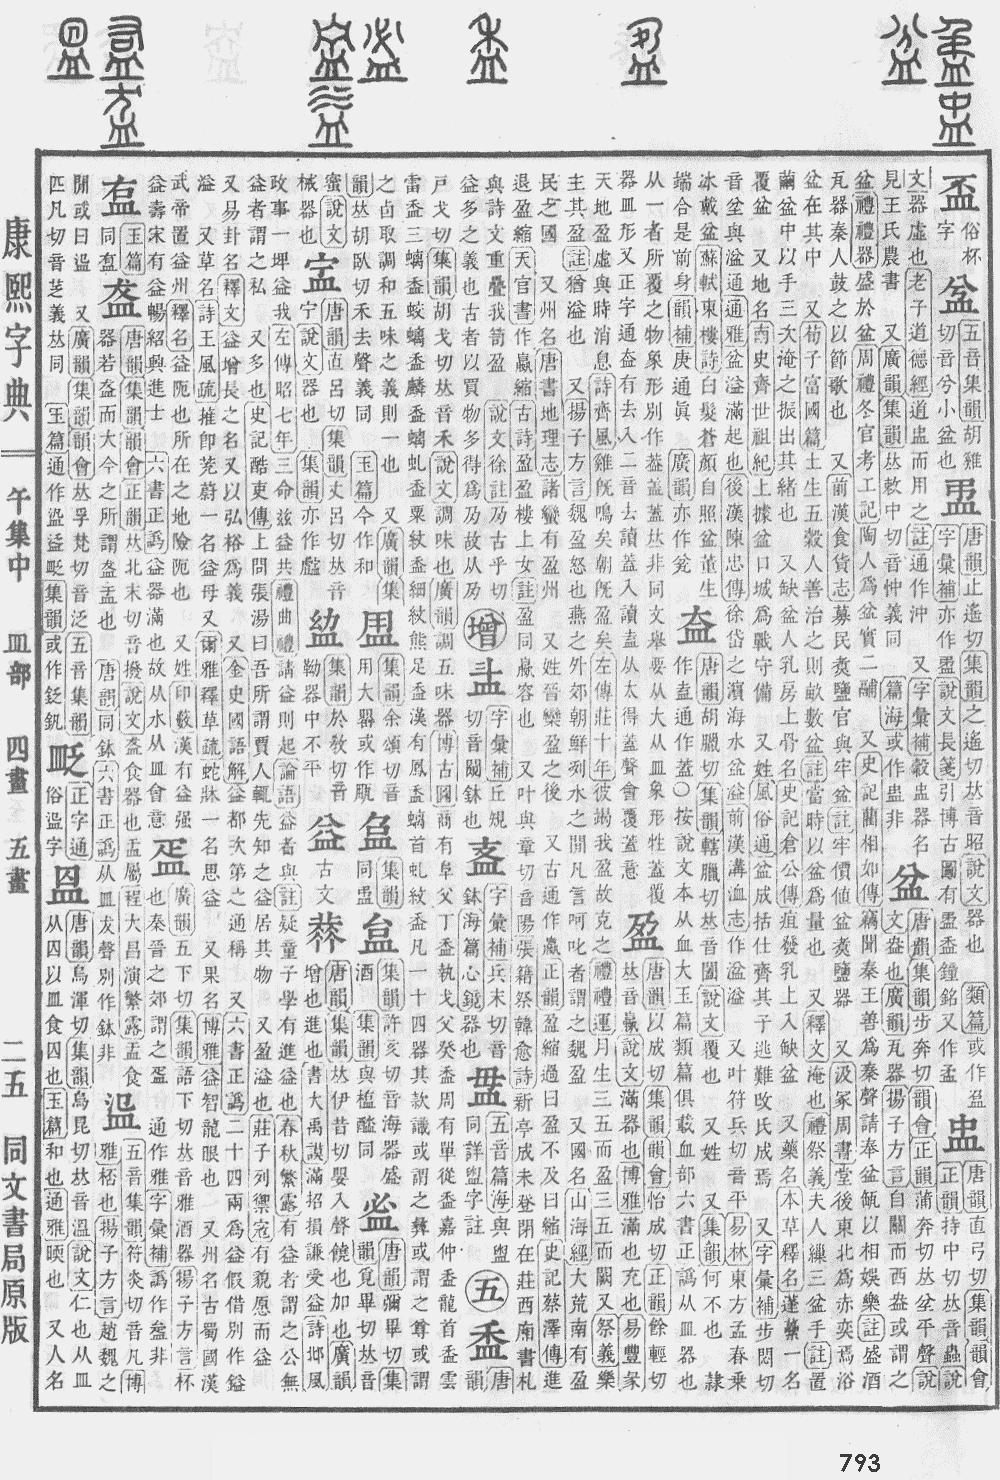 康熙字典 午集中 皿部 四畫 五畫 二五 同文書局原版
盃 俗杯字
五音集韻胡雞切音兮小盆也
盄 唐韻止遙切集韻之遙切𠀤音昭說文器也 類篇或作
字彙補亦作 說文長箋引博古圖有盄盉鐘銘又作盂
盅 唐韻直弓切集韻韻會正韻持中切𠀤音蟲說
文器虛也老子道德經道盅而用之註通作沖 又字彙補榖盅器名
見王氏農書 又廣韻集韻𠀤敕中切音忡義同 篇海或作蛊非
盆 唐韻集韻步奔切韻會正韻蒲奔切𠀤坌平聲說
文盎也廣韻瓦器揚子方言自關而西盎或謂之
盆禮禮器盛於盆周禮冬官考工記陶人爲盆實二鬴 又史記藺相如傳竊聞秦王善爲秦聲請奉盆缻以相娛樂註盛酒
瓦器秦人鼓之以節歌也 又前漢食貨志募民煑鹽官與牢盆註牢價値盆煑鹽器 又汲冢周書堂後東北爲赤奕焉浴
盆在其中 又荀子富國篇土生五穀人善治之則畝數盆註當時以盆爲量也 又釋文淹也禮祭義夫人繅三盆手註置
繭盆中以手三次淹之振出其緒也 又缺盆人乳房上骨名史記倉公傳疽發乳上入缺盆 又藥名本草釋名蓬虆一名
覆盆 又地名南史齊世祖紀上據盆口城爲戰守備 又姓風俗通盆成括仕齊其子逃難改氏成焉 又字彙補步悶切
音坌與湓通通雅盆溢滿起也後漢陳忠傳徐岱之濱海水盆溢前漢溝洫志作湓溢 又叶符兵切音平易林東方孟春乗
冰戴盆蘇軾東樓詩白髮蒼顏自照盆董生
端合是前身韻補庚通眞 廣韻亦作瓫
盇 唐韻胡臘切集韻轄臘切𠀤音闔說文覆也 又姓 又集韻何不也 隸
作盍通作蓋○按說文本从血大玉篇類篇俱載血部六書正譌从皿器也
从一者所覆之物象形別作葢蓋𠀤非同文舉要从大从皿象形牲蓋覆
器皿形又正字通盇有去入二音去讀蓋入讀盍从太得蓋聲會覆蓋意
盈 唐韻以成切集韻韻會怡成切正韻餘輕切
𠀤音嬴說文滿器也博雅滿也充也易豐彖
天地盈虛與時消息詩齊風雞旣鳴矣朝旣盈矣左傳莊十年彼竭我盈故克之禮禮運月生三五而盈三五而闕又祭義樂
主其盈註猶溢也 又揚子方言魏盈怒也燕之外郊朝鮮洌水之閒凡言呵叱者謂之魏盈 又國名山海經大荒南有盈
民之國 又州名唐書地理志諸蠻有盈州 又姓晉欒盈之後 又古通作嬴正韻盈縮過曰盈不及曰縮史記蔡澤傳進
退盈縮天官書作嬴縮古詩盈盈樓上女註盈同嬴容也 又叶與章切音陽張籍祭韓愈詩新亭成未登閉在莊西廂書札
與詩文重疊我笥盈 說文徐註及古乎切
益多之義也古者以買物多得爲及故从及
增
字彙補丘規切音闚鉢也
字彙補兵末切音鉢海篇心鏡器也
五音篇海與 同詳 字註
五
盉 唐韻
戸戈切集韻胡戈切𠀤音禾說文調味也廣韻調五味器博古圖商有阜父丁盉執戈父癸盉周有單從盉嘉仲盉龍首盉雲
雷盉三螭盉蛟螭盉麟盉螭虬盉粟紋盉細紋熊足盉漢有鳳盉螭首虬紋盉凡一十四器其款識或謂之彝或謂之尊或謂
之卣取調和五味之義則一也 又廣韻集
韻𠀤胡臥切禾去聲義同 玉篇今作和
集韻余頌切音用大罌或作
集韻同盅
集韻許亥切音海器盛酒 集韻與榼醢同
唐韻彌畢切集韻覓畢切𠀤音
蜜說文械器也
唐韻直呂切集韻丈呂切𠀤音宁說文器也 集韻亦作
集韻於敎切音勒器中不平
益 古文
唐韻集韻𠀤伊昔切嬰入聲饒也加也廣韻
增也進也書大禹謨滿招損謙受益詩邶風
政事一埤益我左傳昭七年三命兹益共禮曲禮請益則起論語益者與註疑童子學有進益也春秋繁露有益者謂之公無
益者謂之私 又多也史記酷吏傳上問張湯曰吾所謂賈人輒先知之益居其物 又盈溢也莊子列禦寇有貌愿而益
又易卦名釋文益增長之名又以弘裕爲義 又金史國語解益都次第之通稱 又六書正譌二十四兩爲益假借別作鎰
溢 又草名詩王風疏蓷卽茺蔚一名益母又爾雅釋草疏蛇牀一名思益 又果名博雅益智龍眼也 又州名古蜀國漢
武帝置益州釋名益阨也所在之地險阨也 又姓印藪漢有益强
益壽宋有益暢紹興進士 六書正譌益器滿也故从水从皿會意
廣韻五下切集韻語下切𠀤音雅酒器揚子方言杯
也秦晉之郊謂之 通作雅字彙補譌作 非
玉篇同
盋 唐韻集韻韻會正韻𠀤北末切音撥說文盋食器也盂屬程大昌演繁露盂食
器若盋而大今之所謂盋盂也 唐韻同鉢六書正譌从皿犮聲別作鉢非
五音集韻符炎切音凡博
雅桮也揚子方言趙魏之
閒或曰 又廣韻集韻韻會𠀤孚梵切音泛五音集韻
匹凡切音芝義𠀤同 玉篇通作 集韻或作
正字通俗 字
昷 唐韻烏渾切集韻烏昆切𠀤音溫說文仁也从皿
从囚以皿食囚也玉篇和也通雅 也 又人名
793